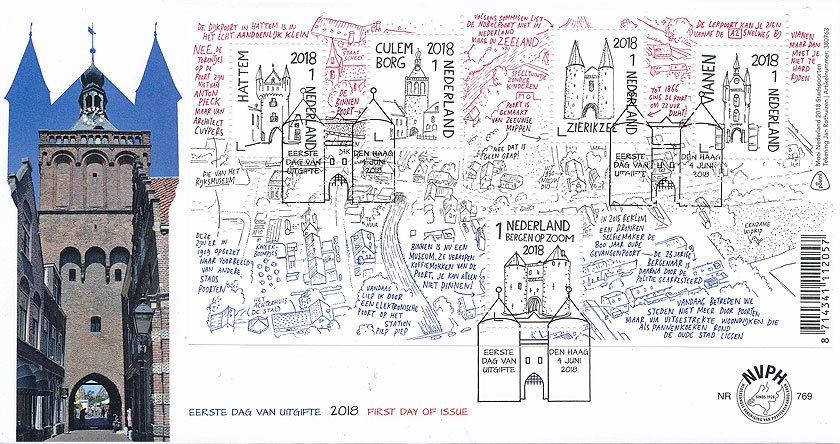 DE DIJKPOORT IN HATTEM IS IN
HET ECHT AANDOENLIJK KLEIN
NEE, DE
TORENTJES
OP DE
POORT ZIJN
NIET VAN
ANTON
PIECK
MAAR VAN
ARCHITECT
CUYPERS
DIE VAN HET
RIJKSMUSEUM
HATTEM
2018
1
NEDERLAND
STRAAT
SCHEEF
DE
BINNEN
POORT
CULEM
BORG
2018
1
NEDERLAND
VOLGENS SOMMIGEN LIGT
DE NOBELPOORT NIET IN
NEDERLAND
MAAR IN ZEELAND
SPEELTUINTJE
ZONDER
KINDEREN
POORT IS
GEMAAKT
VAN ZEEUWSE
MOPPEN
NEE DAT IS
GEEN GRAP!
ZIERIKZEE
2018
1
NEDERLAND
DE LEPOORT KAN JE ZIEN
VANAF DE A2 (SNELWEG B)
VIANEN
MAAR DAN
MOET JE
NIET TE
HARD
RIJDEN
TOT 1866
GING DE POORT
OM 22 UUR
DICHT
VIANEN
2018
1
NEDERLAND
EERSTE
DAG VAN
UITGIFTE
DEN HAAG
4 JUNI
2018
EERSTE
DAG VAN
UITGIFTE
DEN HAAG
4 JUNI
2018
DEZE
ZIJN ER IN
1909 OPGEZET
NAAR VOORBEELD
VAN ANDERE
STADS
POORTEN
KWEEK-
BOOMPJES
HET
ACHTERHUIS
(DE STAD)
TE
HUUR
VANDAAG
LIEP IK DOOR
EEN ELEKTRONISCHE
POORT OP HET
STATION
PIEP PIEP
BINNEN IS NU EEN
MUSEUM, ZE VERKOPEN
KOFFIEMOKKEN VAN DE
POORT, JE KAN ALLEEN
NIET PINNEN!
1 NEDERLAND
BERGEN OP ZOOM
2018
IN 2015 BEKLOM
EEN DRONKEN
SELFIEMAKER DE
800 JAAR OUDE
GEVANGENPOORT
DE 23 JARIGE
BERGENAAR IS
DAARNA DOOR DE
POLITIE GEARRESTEERD
EENZAME
WIJNGERD
VANDAAG BETREDEN WE
STEDEN NIET MEER DOOR POORTEN
MAAR VIA UITGESTREKTE WOONWIJKEN DIE
ALS PANNENKOEKEN ROND
DE OUDE STAD LIGGEN
Mooi Nederland 2018 Stadspoorten
8 714341 112057
EERSTE
DAG VAN
UITGIFTE
DEN HAAG
4 JUNI
2018
EERSTE DAG VAN UITGIFTE 2018 FIRST DAY OF ISSUE
NR
NVPH
SINDS 1928
769